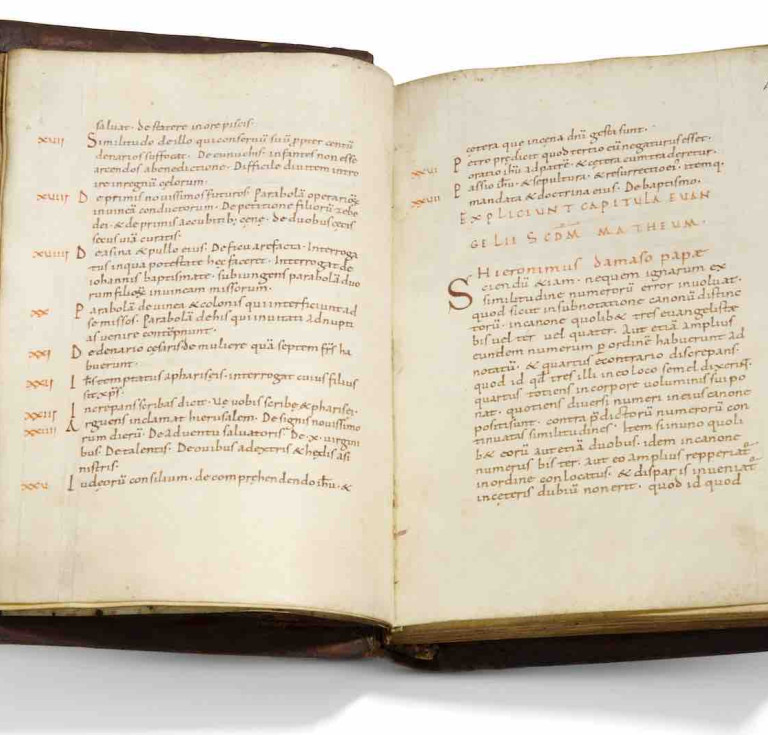 saluat. de statere in ore piscis.
XVII Similitudo de illo qui conseruū suū ppter centū
denarios suffocat. De eunuchis. infantes non esse
arcendos a benedictione. Difficile diuitem intro
ire in regnū celorum.
XVIII De primis nouissimos futuros. Parabolā operarios
in uinea conductorum. De petitione filiorū zebe
dei. & de primis accubitib; cenę. de duobus cecis
secus uiā curatis.
XVIIII De asina & pullo eius. De ficu arefacta. Interroga
tus in qua potestate hec faceret. Interrogat de
iohannis baptismate. subiungens parabolā duo
rum filioꝝ in uineam missorum.
XX Parabolā de uinea & colonis qui interficiunt ad
se missos. Parabolā de his qui inuitati ad nupti
as uenire contēpnunt.
XXI De denario cesaris de muliere quā septem frs ha
buerunt.
XXII Ihs temptatus a phariseis. interrogat cuius filius
sit xps.
XXIII Increpans scribas dicit. Ue uobis scribe & pharisei.
XXIIII Arguens inclamat hierusalem. De signis nouissimo
rum dierū. De aduentu saluatoris. De x. uirgini
bus. De talentis. De ouibus a dextris & hędis a si
nistris.
XXV Iudeorū consilium. de comprehendendo ihu. &
cetera que in cena dni gesta sunt.
XXVI Petro predicit quod tertio eū negaturus esset.
oratio ihu ad patrē. & cetera cum traderetur.
XXVII Passio ihu. & sepultura. & resurrectio ei. itemq.
mandata & doctrina eius. De baptismo.
EXPLICIUNT CAPITULA EUAN
GELII SCDM MATHEUM.
HIERONIMUS damaso papę
Sciendū &iam. ne quem ignarum ex
similitudine numerorū error inuoluat.
quod sicut in subnotatione canonū distinc
torū. in canone quolib& tres euangelistę
bis uel ter uel quater. Aut etiā amplius
eundem numerum p ordinē habuerunt ad
notatū. & quartus econtrario discrepans.
quod id qd tres illi in eo loco semel dixerint.
quartus totiens in corpore uoluminis sui po
nat. quotiens diuersi numeri in eius canone
positi sunt. contra p̄dictorū numerorū con
tinuatas similitudines. Item si in uno quoli
b& eorū aut etiā duobus. idem in canone
numerus bis ter. aut eo amplius repperiat
in ordine conlocatus. & dispar is inueniat
in ceteris dubiū non erit. quod id quod